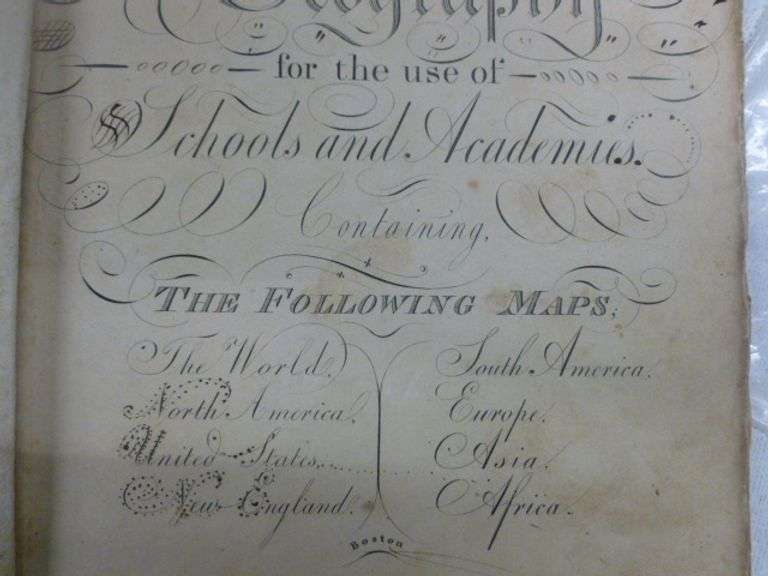 Geography
for the use of
Schools and Academies.
Containing,
THE FOLLOWING MAPS;
The World.
North America.
United States.
New England.
South America.
Europe.
Asia.
Africa.
Boston